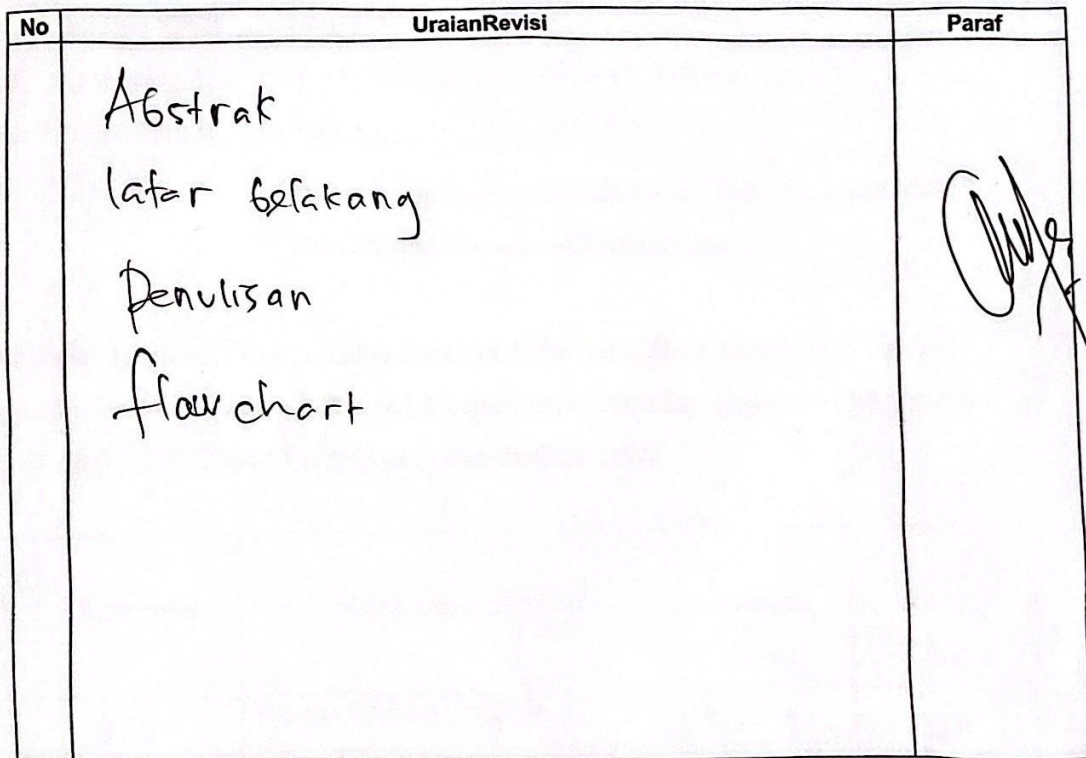 No UraianRevisi Paraf
Abstrak
latar belakang
Penulisan
flowchart